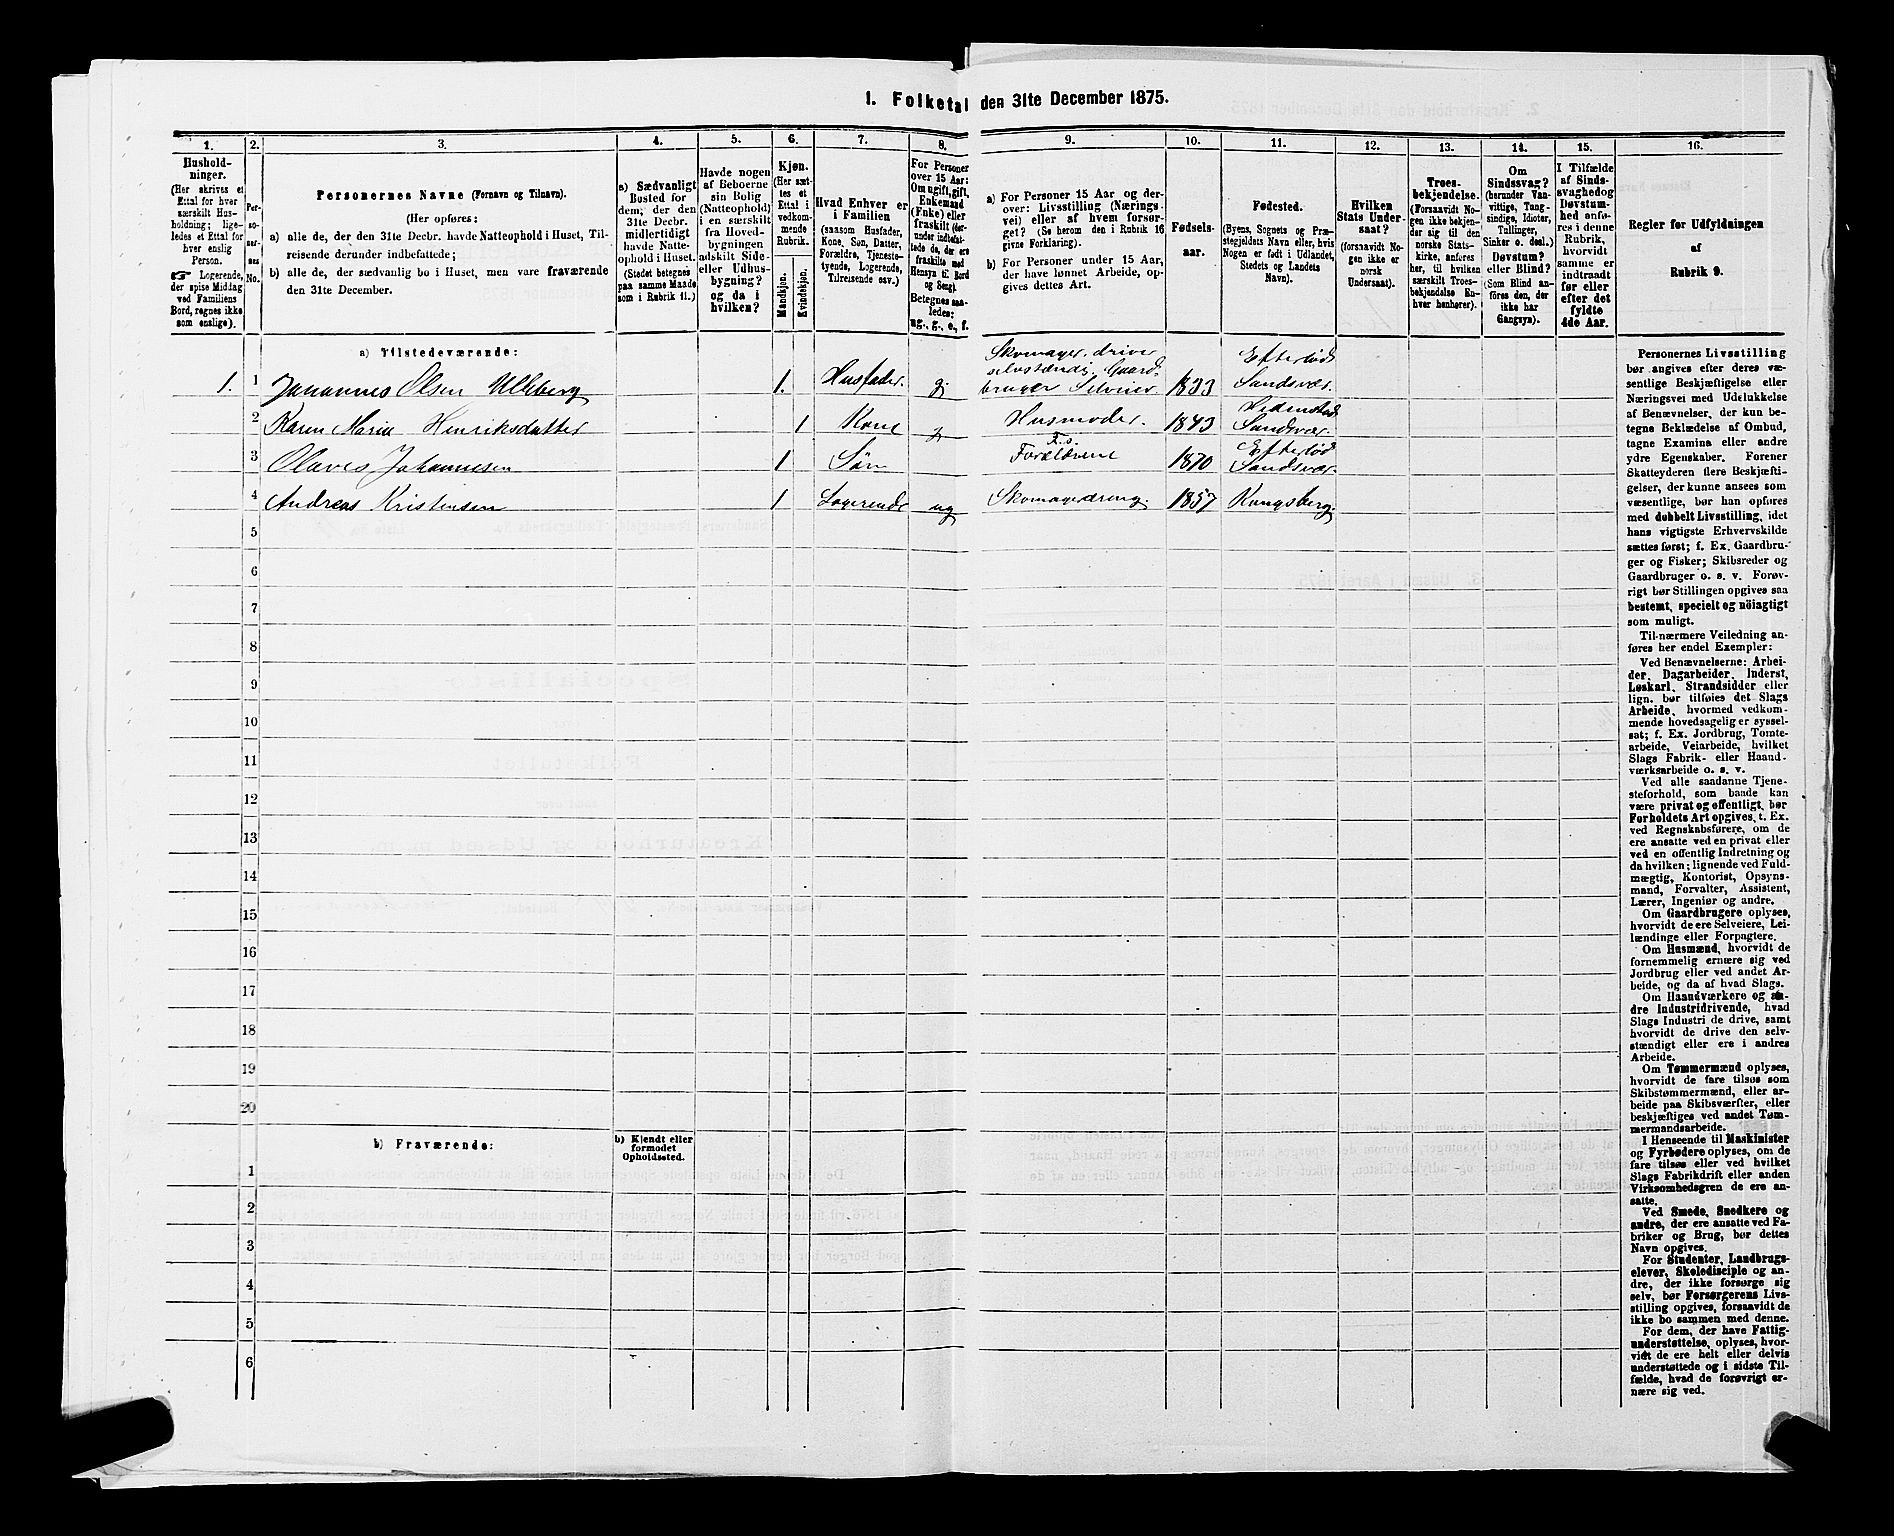 1. Folketal den 31te December 1875.
1.
Hushold-
ninger.
(Her skrives et
Ettal for hver
særskilt Hus-
holdning; lige-
ledes et Ettal for
hver enslig
Person.
☞ Logerende,
der spise Middag
ved Familiens
Bord, regnes ikke
som enslige).
2.
Per-
so-
ner-
nes
No.
3.
Personernes Navne (Fornavn og Tilnavn).
(Her opføres:
a) alle de, der den 31te Decbr. havde Natteophold i Huset, Til-
reisende derunder indbefattede;
b) alle de, der sædvanlig bo i Huset, men vare fraværende
den 31te December.
4.
a) Sædvanligt
Bosted for
dem, der den
31te Decbr.
midlertidigt
havde Natte-
ophold i Huset.
(Stedet betegnes
paa samme Maade
som i Rubrik 11.)
5.
Havde nogen
af Beboerne
sin Bolig
(Natteophold)
i en særskilt
fra Hoved-
bygningen
adskilt Side-
eller Udhus-
bygning?
og da i
hvilken?
6.
Kjøn.
(Her sæt-
tes et
Ettal i
vedkom-
mende
Rubrik.
Mandkjøn.
Kvindekjøn.
7.
Hvad Enhver er
i Familien
(saasom Husfader,
Kone, Søn, Datter,
Forældre, Tjeneste-
tyende, Logerende,
Tilreisende osv.)
8.
For Personer
over 15 Aar:
Om ugift, gift,
Enkemand
(Enke) eller
fraskilt (der-
under indbefat-
tede de, der ere
fraskilte med
Hensyn til Bord
og Seng).
Betegnes saa-
ledes:
ug., g., e., f.
9.
a) For Personer 15 Aar og der-
over: Livsstilling (Nærings-
vei) eller af hvem forsør-
get? (Se herom den i Rubrik 16
givne Forklaring).
b) For Personer under 15 Aar,
der have lønnet Arbeide, op-
gives dettes Art.
10.
Fødsels-
aar.
11.
Fødested.
(Byens, Sognets og Præ-
stegjeldets Navn eller, hvis
Nogen er født i Udlandet,
Stedets og Landets
Navn).
12.
Hvilken
Stats Under-
saat?
(forsaavidt No-
gen ikke er
norsk
Undersaat).
13.
Troes-
bekjendelse.
(Forsaavidt No-
gen ikke bekjen-
der sig til den
norske Stats-
kirke, anføres
her, til hvilken
særskilt Troes-
bekjendelse En-
hver henhører).
14.
Om
Sindssvag?
(herunder Van-
vittige, Tung-
sindige, Idioter,
Tullinger,
Sinker o. desl.)
Døvstum?
eller Blind?
(Som Blind an-
føres den, der
ikke har
Gangsyn).
15.
I Tilfælde
af Sinds-
svaghed og
Døvstum-
hed anfø-
res i denne
Rubrik,
hvorvidt
samme er
indtraadt
før eller
efter det
fyldte
4de Aar.
16.
Regler for Udfyldningen
af
Rubrik 9.
a) Tilstedeværende:
1. 1 Johannes Olsen Ulleberg 1. Husfader. g. Skomager. driver selvstændig. Gaard- bruger Selveier. 1833 Efteløds Sandsvær.
2 Karen Marie Henriksdatter 1 Kone g. Husmoder. 1843 Hedenstad Sandsvær.
3 Olaves Johannesen 1 Søn F. s. Forældrene 1870 Efteløds Sandsvær.
4 Andreas Kristensen 1 Logerende ug Skomagerdreng. 1857 Kongsberg.
5
6
7
8
9
10
11
12
13
14
15
16
17
18
19
20
b) Fraværende:
b) Kjendt eller
formodet
Opholdssted.
1
2
3
4
5
6
Personernes Livsstilling
bør angives efter deres væ-
sentlige Beskjæftigelse eller
Næringsvei med Udelukkelse
af Benævnelser, der kun be-
tegne Beklædelse af Ombud,
tagne Examina eller andre
ydre Egenskaber. Forener
Skatteyderen flere Beskjæfti-
gelser, der kunne ansees som
væsentlige, bør han opføres
med dobbelt Livsstilling, idet
hans vigtigste Erhvervskilde
sættes først; f. Ex. Gaardbru-
ger og Fisker; Skibsreder og
Gaardbruger o. s. v. Forøv-
rigt bør Stillingen opgives saa
bestemt, specielt og nöiagtigt
som muligt.
Til nærmere Veiledning an-
føres her endel Exempler:
Ved Benævnelserne: Arbei-
der, Dagarbeider, Inderst,
Løskarl, Strandsidder eller
lign. bør tilføies det Slags
Arbeide, hvormed vedkom-
mende hovedsagelig er syssel-
sat; f. Ex. Jordbrug, Tomte-
arbeide, Veiarbeide, hvilket
Slags Fabrik- eller Haand-
værksarbeide o. s. v.
Ved alle saadanne Tjene-
steforhold, som baade kan
være privat og offentligt, bør
Forholdets Art opgives, t. Ex.
ved Regnskabsførere, om de
ere ansatte ved en privat eller
ved en offentlig Indretning og
da hvilken; lignende ved Fuld-
mægtig, Kontorist, Opsyns-
mand, Forvalter, Assistent,
Lærer, Ingeniør og andre.
Om Gaardbrugere oplyses,
hvorvidt de ere Selveiere, Lei-
lændinge eller Forpagtere.
Om Husmænd, hvorvidt de
fornemmelig ernære sig ved
Jordbrug eller ved andet Ar-
beide, og da af hvad Slags.
Om Haandværkere og an-
dre Industridrivende, hvad
Slags Industri de drive, samt
hvorvidt de drive den selv-
stændigt eller ere i andres
Arbeide.
Om Tømmermænd oplyses,
hvorvidt de fare tilsøs som
Skibstømmermænd, eller ar-
beide paa Skibsværfter, eller
beskjæftiges ved andet Tøm-
mermandsarbeide.
I Henseende til Maskinister
og Fyrbødere oplyses, om de
fare tilsøs eller ved hvilket
Slags Fabrikdrift eller anden
Virksomhedsgren de ere an-
satte.
Ved Smede, Snedkere og
andre, der ere ansatte ved Fa-
briker og Brug, bør dettes
Navn opgives.
For Studenter, Landbrugs-
elever, Skoledisciple og an-
dre, der ikke forsørge sig
selv, bør Forsørgerens Livs-
stilling opgives, forsaavidt de
ikke bo sammen med denne.
For dem, der have Fattig-
understøttelse, oplyses, hvor-
vidt de ere helt eller delvis
understøttede og i sidste Til-
fælde, hvad de forøvrigt er-
nære sig ved.